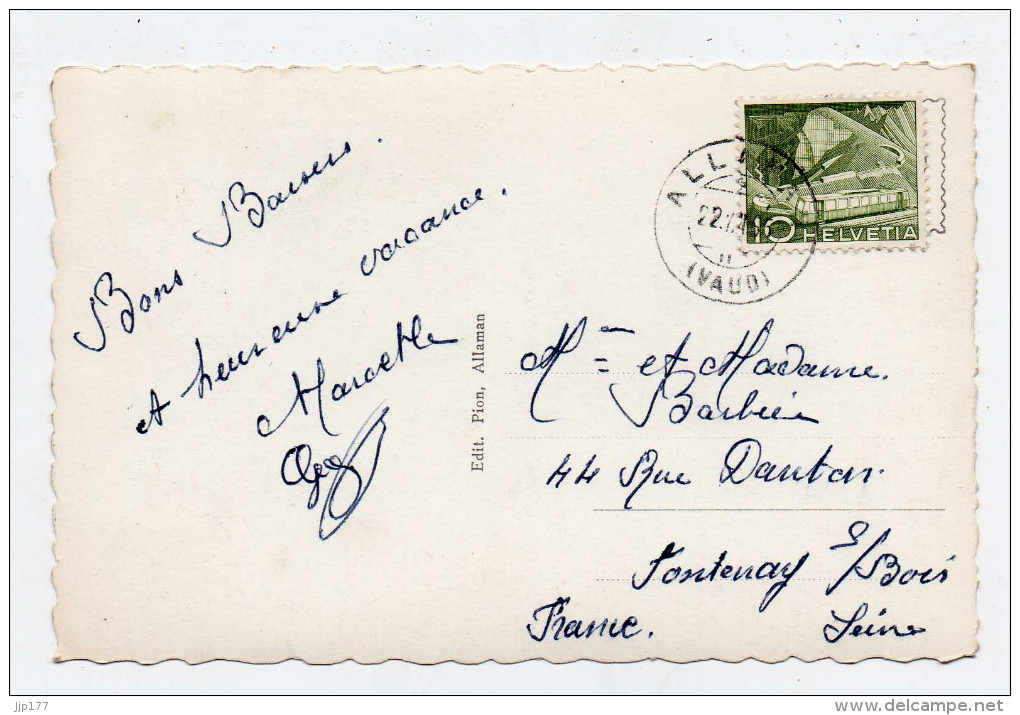 Bons Baisers.
et heureuse vacance.
Marcelle
Edit. Pion, Allaman
(VAUD)
10 HELVETIA
Mme et Madame
Barbier
44 Rue Danton
Fontenay s/Bois
France. Seine
jjp177
www.delcampe.net